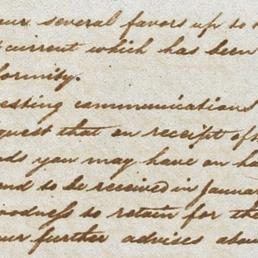 our several favors up to
current which has been
formity.
esting communications
quest that on receipt of
ds you may have on ha
and to be received in Januar
oodness to retain for the
our further advises abou